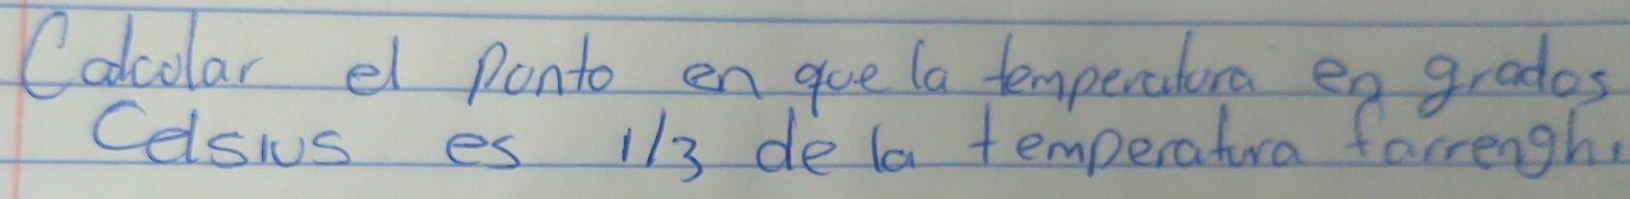 Calcular el punto en que la temperatura en grados
Celsius es 1/3 de la temperatura farrenghi